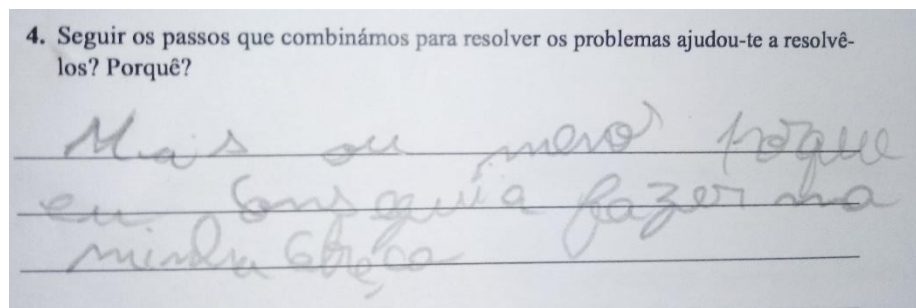 4. Seguir os passos que combinámos para resolver os problemas ajudou-te a resolvê-
los? Porquê?
Mais ou menos porque
eu conseguia fazer na
minha cabeça